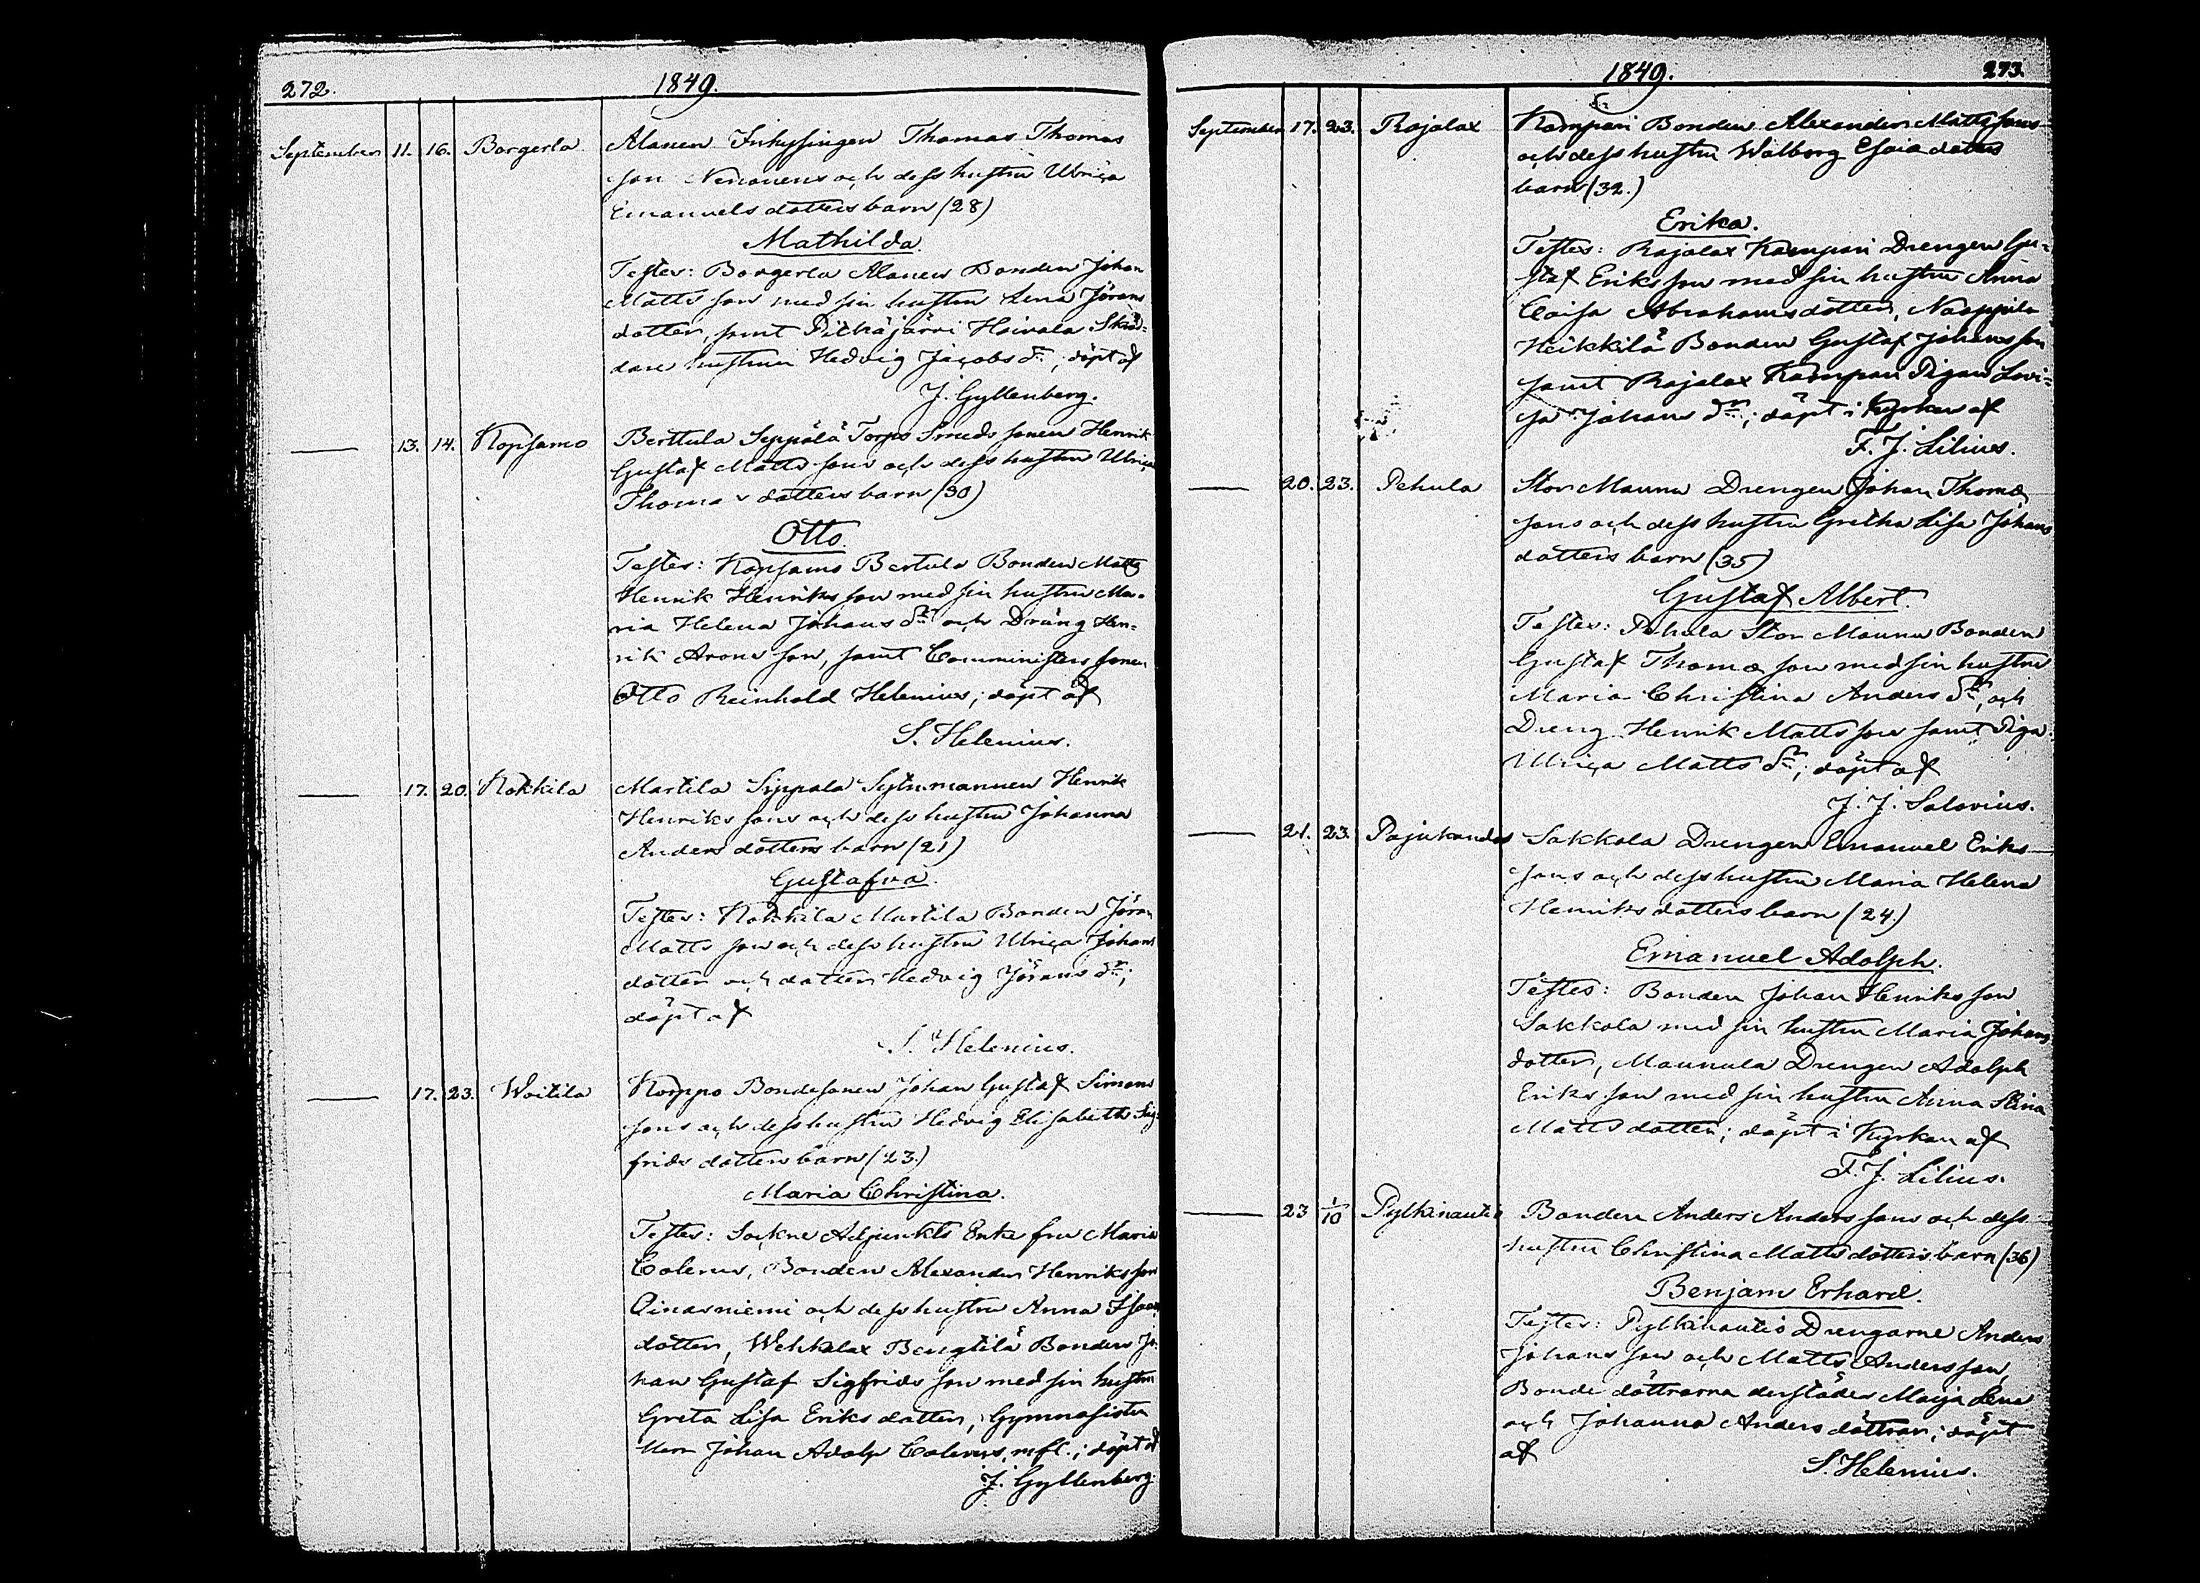 272.
1849.
September 11. 16. Borgerla Alanen Inhysingen Thomas Thomas
son Neronens och dess hustru Ulrica
Emanuels dotters barn (28)
Mathilda.
Testes: Borgerla Alanen Bonden Johan
Matts son med sin hustru Lena Jörans
dotter, samt Pitkäjärvi Hoivala Skräd-
dare hustrun Hedvig Jacobs dr; döpt af
J. Gyllenberg.
— 13. 14. Kopsamo Berttula Seppälä Torps Smeds sonen Henrik
Gustaf Matts sons och dess hustru Ulrica
Thomæ dotters barn (30)
Otto.
Testes: Kopsamo Bertula Bonden Matts
Henrik Henriks son med sin hustru Ma-
ria Helena Johans dr och Dräng Hen-
rik Arons son, samt Comministers sonen
Otto Reinhold Helenius; döpt af
S. Helenius.
— 17. 20. Kokkila Martila Sippala Sytnimannen Henrik
Henriks sons och dess hustru Johanna
Anders dotters barn (21)
Gustafva.
Testes: Kokkila Martila Bonden Jöran
Matts son och dess hustru Ulrica Johans
dotter och dotter Hedvig Jörans dr;
döpt af
S. Helenius.
— 17. 23. Woitila Korppo Bondesonen Johan Gustaf Simons
sons och dess hustru Hedvig Elisabeth Sig-
frids dotters barn (23.)
Maria Christina.
Testes: Sockne Adjunkts Enke fru Maria
Colerus, Bonden Alexander Henriks son
Oinasniemi och dess hustru Anna Isaacs
dotter, Wehkalax Bengtilä Bonden Jo-
han Gustaf Sigfrids son med sin hustru
Greta Lisa Eriks dotter, Gymnasisten
Herr Johan Adolf Colerus, m.fl.; döpt af
J. Gyllenberg.
1849.
273.
September 17. 23. Rajalax Kampari Bonden Alexander Matts sons
och dess hustru Walborg Esaiæ dotters
barn (32.)
Erika.
Testes: Rajalax Kampari Drengen Gu-
staf Eriks son med sin hustru Anna
Caisa Abrahams dotter, Naappila
Heikkilä Bonden Gustaf Johans son
samt Rajalax Kampari Pigan Lovi-
sa Johans dr; döpt i Kyrkan af
F. J. Lilius.
— 20. 23. Pehula Stor Maunu Drengen Johan Thomæ
sons och dess hustru Gretha Lisa Johans
dotters barn (35)
Gustaf Albert.
Testes: Pehula Stor Maunu Bonden
Gustaf Thomæ son med sin hustru
Maria Christina Anders dr, och
Dreng Henrik Matts son samt Piga
Ulrica Matts dr; döpt af
J. J. Salovius.
— 21. 23. Pajukanda Sakkola Drengen Emanuel Eriks
sons och dess hustru Maria Helena
Henriks dotters barn (24.)
Emanuel Adolph.
Testes: Bonden Johan Henriks son
Sakkola med sin hustru Maria Johans
dotter, Maunula Drengen Adolph
Eriks son med sin hustru Anna Stina
Matts dotter; döpt i Kyrkan af
F. J. Lilius.
— 23 1/10 Pylkinautio Bonden Anders Anders sons och dess
hustru Christina Matts dotters barn (36)
Benjam Erhard.
Testes: Pylkinautio Drengarne Anders
Johans son och Matts Anders son,
Bonde döttrarna derstädes Maja Lena
och Johanna Anders döttrar; döpt
af
S. Helenius.